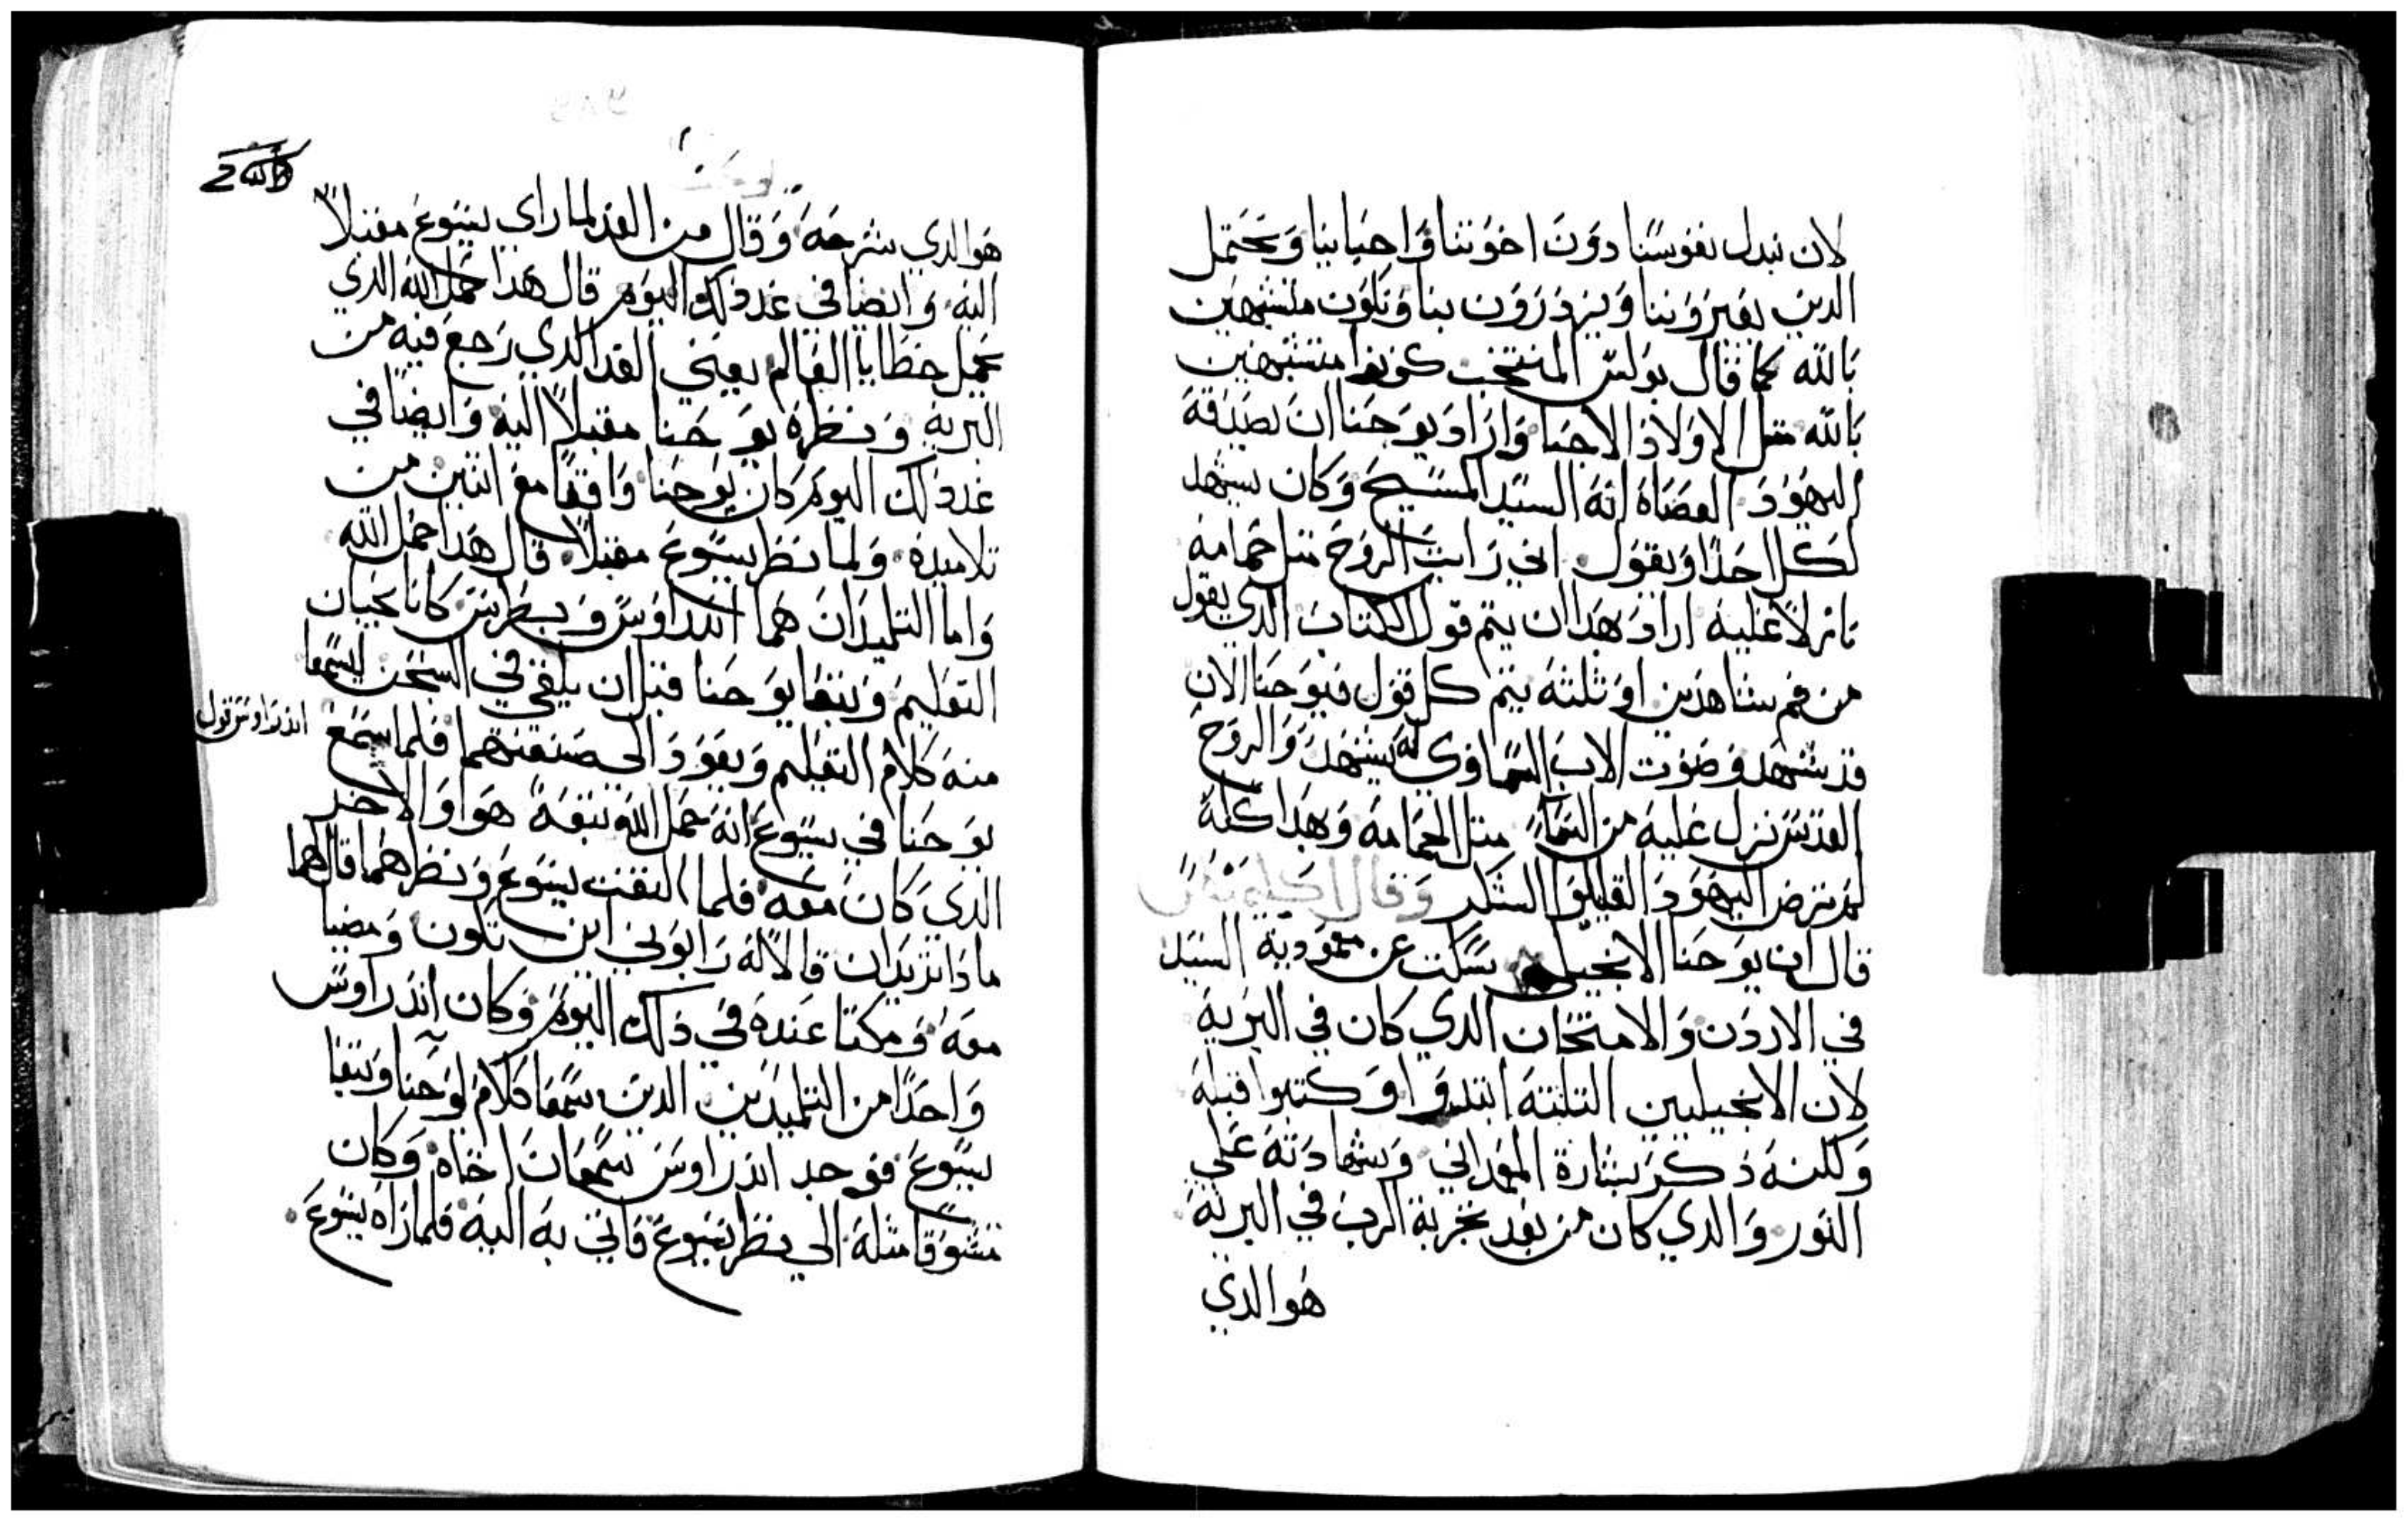 لان نبدل نفوسنا دون اخوتنا واحبابنا ونحتمل
الدين يعيرووننا ويزدرون بنا ونكون متشبهين
بالله كما قال بولس المنتخب كونوا متشبهين
بالله مثل الاولاد الاحبا واراد يوحنا ان
اليهود العصاه انه السيد المسيح وكان يشهد
لكل احدا ويقول اني رايت الروح مثل حمامه
نازلا عليه اراد هدا ان يتم قول الكتاب الدي يقول
من فم شاهدين او ثلثه يتم كل قول فيوحنا الان
قد شهد وصوت الاب السماوي له يشهد والروح
القدس نزل عليه من السماء مثل الحمامه وهدا كله
لم ترض اليهود القليلو الشكر وقال اكليمنضس
قال ان يوحنا الانجيلي سكت عن معمودية السيد
في الاردن والامتحان الدي كان في البريه
لان الانجيليين التلته ابتدوا وكتبوا قبله
ولكنه ذكر بشارة المعمداني وشهادته علي
النور والدي كان من بعد تجربة الرب في البريه
هو الدي
هو الدي شرحه وقال من الغد لما راي يسوع مقبلا
اليه وايضا في غد دلك اليوم قال هدا حمل الله الدي
يحمل خطايا العالم يعني الغد الدي رجع فيه من
البريه ونظره يوحنا مقبلا اليه وايضا في
غد دلك اليوم كان يوحنا واقفا مع اثنين من
تلاميده ولما نظر يسوع مقبلا قال هدا حمل الله
واما التلميدان هما اندراوس وبطرس كانا يحبان
التعليم وتبعا يوحنا قبل ان يلقي في السجن ليسمعا
منه كلام التعليم ويعود الي صنعتهما فلما سمع
اندراوس قول
يوحنا في يسوع انه حمل الله تبعه هو والاخر
الدي كان معه فلما التفت يسوع ونظرهما قال لهما
مادا تريدان قالا له رابوني اين تكون ومضيا
معه ومكتا عنده في ذلك اليوم وكان اندراوس
واحدا من التلميدين الدين سمعا كلام يوحنا وتبعا
يسوع فوجد اندراوس سمعان اخاه وكان
متشوقا مثله الي نظر يسوع فاتي به اليه فلما راه يسوع